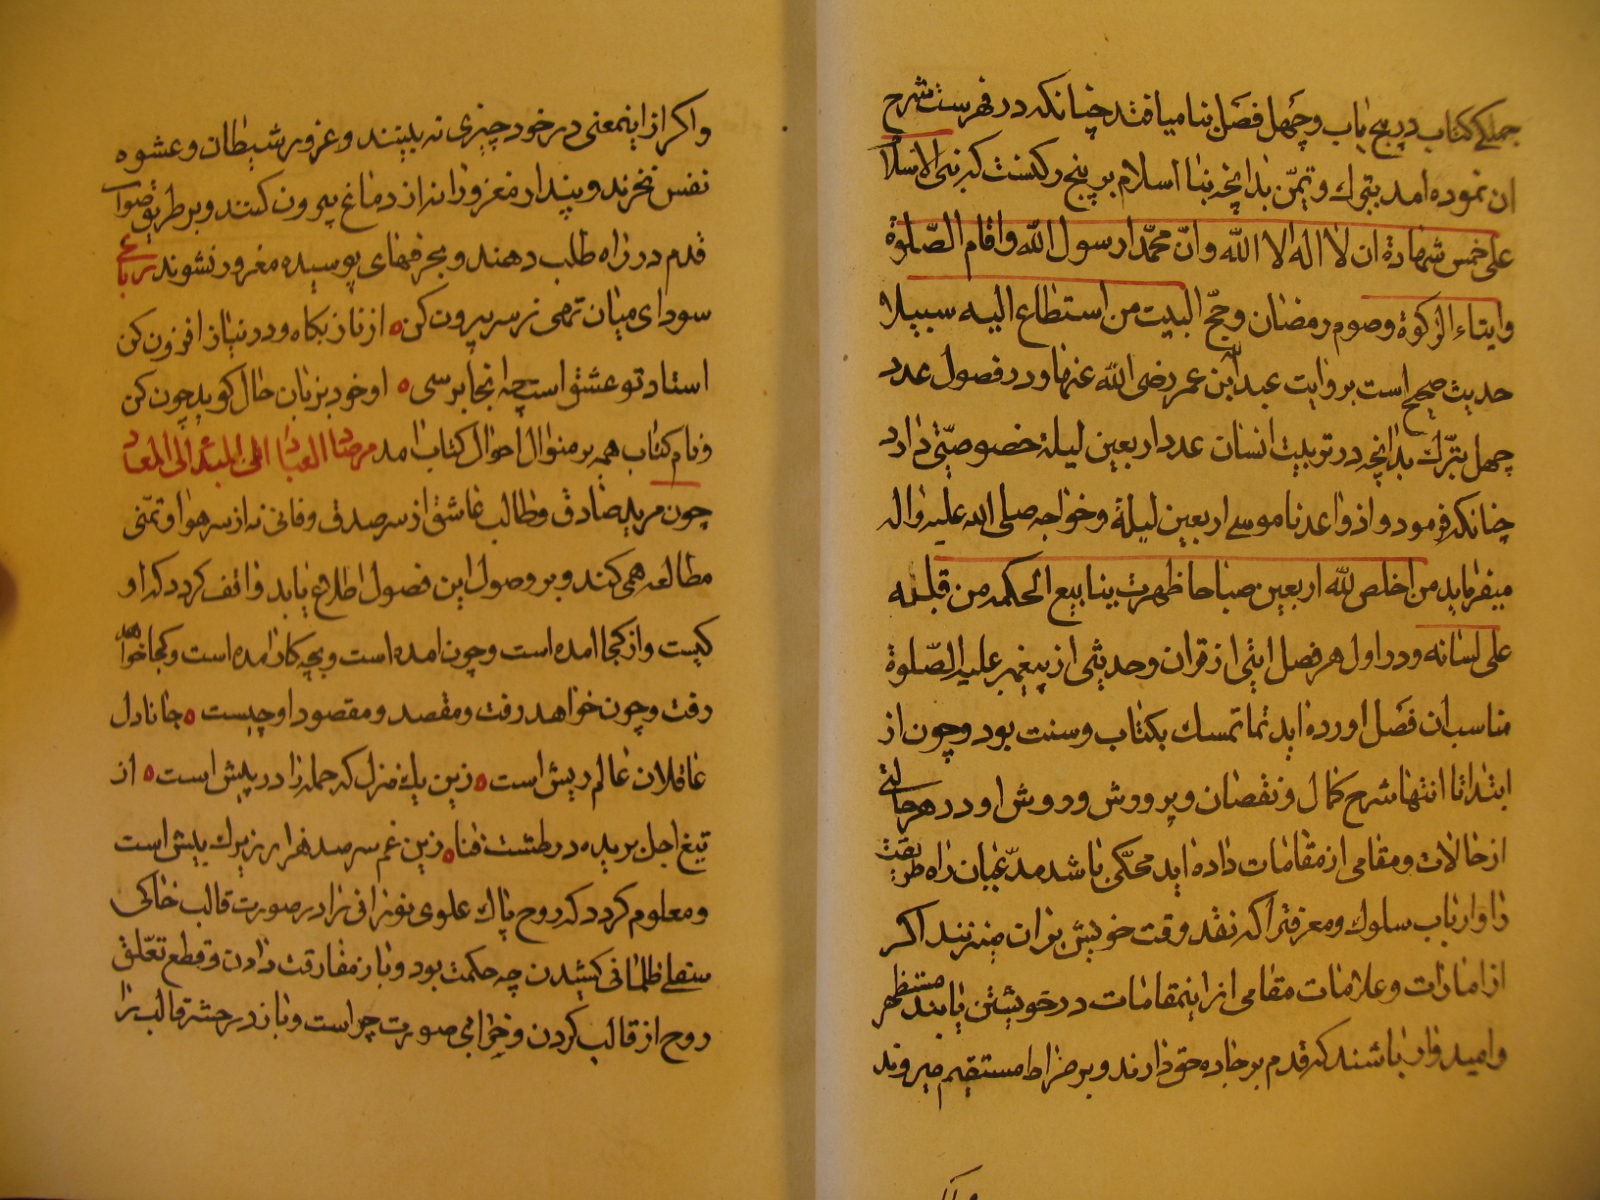 جملگی کتاب در پنج باب و چهل فصل بنا میافتد چنانکه در فهرست شرح
ان نموده امد بتبرک و تیمن بدانچه بنا اسلام بر پنج رکنست که بنی الاسلام
علی خمس شهادة ان لا اله الا الله وان محمدا رسول الله واقام الصلوة
وایتاء الزکوة وصوم رمضان وحج البیت من استطاع الیه سبیلا
حدیث صحیح است بروایت عبدالله بن عمر رضی الله عنهما ودر فصول عدد
چهل بتبرک بدانچه در تربیت انسان عدد اربعین لیلة خصوصیتی دارد
چنانکه فرمود واذ واعدنا موسی اربعین لیلة وخواجه صلی الله علیه واله
میفرماید من اخلص لله اربعین صباحا ظهرت ینابیع الحکمه من قلبه
علی لسانه ودر اول هر فصل ایتی از قران وحدیثی از پیغمبر علیه الصلوة
مناسب ان فصل اورده اید تا تمسک بکتاب وسنت بود وچون از
ابتدا تا انتها شرح کمال ونقصان وپرورش وروش او در هر حالتی
از حالات ومقامی از مقامات داده اید محکی باشد مدعیان راه طریقت
را وارباب سلوک ومعرفترا که نقد وقت خویش بران میزنند اکر
از امارات وعلامات مقامی از اینمقامات در خویشتن یابند مستظهر
وامیدوار باشند که قدم بر جاده حق دارند وبر صراط مستقیم میروند
واکر از اینمعنی در خود چیزی نه بینند وغرور شیطان وعشوه
نفس نخرند وپندار مغرورانه از دماغ بیرون کنند وبر طریق صواب
قدم در راه طلب دهند وبحرفهای پوسیده مغرور نشوند رباعی
سودای میان تهی ز سر بیرون کن ه از ناز بکاه ودر نیاز افزون کن
استاد تو عشق است چه انجا برسی ه او خود بزبان حال کوید چون کن
ونام کتاب هم بر منوال احوال کتاب امد مرصاد العباد الی المبدا الی المعاد
چون مرید صادق وطالب عاشق از سر صدق وفائی نه از سر هوا وتمنی
مطالعه همی کند وبر وصول این فصول اطلاع یابد واقف کردد که او
کیست واز کجا امده است وچون امده است وبچه کار امده است وکجا خواهد
رفت وچون خواهد رفت ومقصد ومقصود او چیست ه جانا دل
عاقلان عالم ریش است ه زین یک منزل که جمله را در پیش است ه از
تیغ اجل بریده در طشت فنا ه زین غم سر صد هزار زیرک بیش است
ومعلوم کردد که روح پاک علوی نورانی را در صورت قالب خاکی
سفلی ظلمانی کشیدن چه حکمت بود وباز مفارقت دادن وقطع تعلق
روح از قالب کردن وخرابی صورت چراست وباز در حشر قالب را